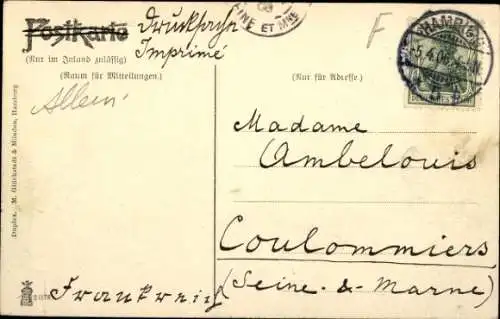 Postkarte Drucksache
Imprimé
(Nur im Inland zulässig)
(Raum für Mitteilungen.)
(Nur für Adresse.)
F
HAMBURG
5.4.06
INE ET MNE
Duplex. M. Glückstadt & Münden, Hamburg
Madame
Ambelouis
Coulommiers
(Seine-&-Marne)
Frankreich